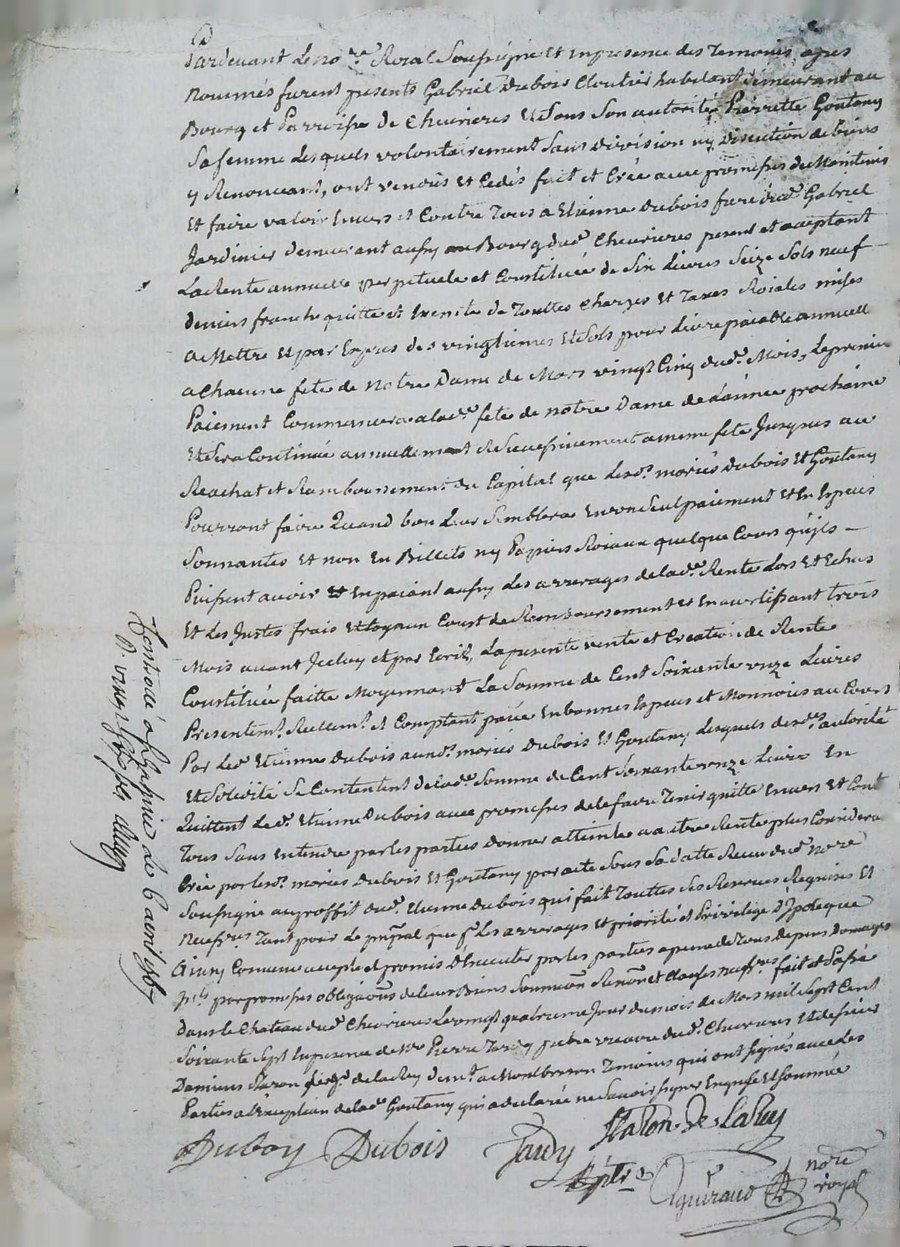 Pardevant Le no.re Royal Soussigné et en presence des Temoins apres
nommés furent presents Gabriel Dubois Cloutier habitant demeurant au
Bourg et Parroisse de Chevrieres et Sous Son autorité Pierrette Goutany
Sa femme Lesquels volontairement Sans Division ny Discution de biens
y Renonceant, ont vendus et Cedés fait et Crée avec promesses de Maintenir
et faire valoir Envers et Contre Tous a Etienne Dubois frere dud. Gabriel
Jardinier demeurant aussy au Bourg dud. Chevrieres present et aceptant
La Rente annuelle perpetuele et Constituée de Six Livres Seize Sols neuf
deniers franche quitte et Exemte de Touttes Charges et Taxes Roiales mises
a Mettre et par Expres des vingtiemes et Sols pour Livre paiable annuell
a Chacune fete de Notre Dame de Mars vingt Cinq dud. Mois, Le premier
Paiement Commancera a lad. fete de notre Dame de L'année prochaine
et Sera Continué annuellement et Successivement a meme fete Jusques au
Reachat et Ramboursement du Capital que Lesd. mariés Dubois et Goutany
Pourront faire Quand bon Leur Semblera En un Seul paiement et En Especes
Sonnantes et non En Billets ny Papiers Roiaux quelque Cours qu'ils
Puissent avoir et En paiant aussy Les arrerages de lad. Rente Lors et Echus
et Les Justes frais et Loyaux Cout de Remboursement et En avertissant trois
Mois avant Iceluy et par Ecrit, La presente vente et Creation de Rente
Constituée faitte Moyennant La Somme de Cent Soixante onze Livres
Presentem. Reellem. et Comptant paiée En bonnes Especes et Monnoies au Cours
Par Led. Etienne Dubois auxd. mariés Dubois et Goutany Lesquels desd. autorité
et Solidité Se Contentent de lad. Somme de Cent Soixante onze Livres En
Quittent Led. Etienne Dubois avec promesses de le faire Tenir quitte Envers et Cont
Tous Sans Entendre par les parties donner atteinte a autre Rente plus Considera
Crée par lesd. mariés Dubois et Goutany par acte Sous Sa datte Receu dud. Notre
Soussigné au proffit dud. Etienne Dubois qui fait Touttes Ses Reserves Requises et
Necess.res Tant pour Le prin.pal que p. Les arrerages et priorité et Privilege d'Ipoteque
Ainsy Convenu accepté et promis d'Executer par les parties a peine de Tous depens Domages
par promesses obligaõns de leurs Biens Soumiõn Renon et Clauses necess.res fait et Passé
dans le Chateau dud. Chevrieres Le vingt quatrieme Jour du mois de Mars mil Sept Cent
Soixante Sept En presence de M.re Pierre Tardy pretre vicaire dud. Chevrieres et de Sieur
Damiens Staron de la Rey dem.t a Montbrison Temoins qui ont Signés avec Les
Parties a L'exeption de lad. Goutany qui a declarée ne Savoir Signer Enquise et Sommée
Duboy Dubois Tardy Staron. de LaRey
ptre Aguiraud notre
royal
Controlé à le 6 avril 1767